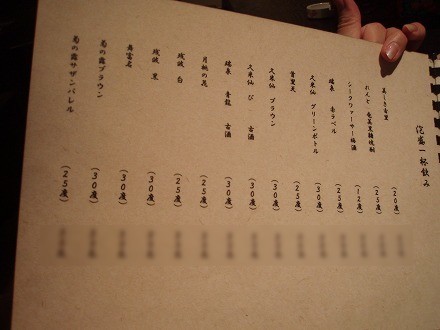 泡盛一杯飲み
美しき古里 (20度)
れんと 奄美黒糖焼酎 (25度)
シークワーサー梅酒 (12度)
瑞泉 青ラベル (25度)
久米仙 グリーンボトル (30度)
菅里天 (25度)
久米仙 ブラウン (30度)
久米仙 び 古酒 (30度)
瑞泉 青龍 古酒 (30度)
月桃の花 (25度)
残波 白 (25度)
残波 黒 (30度)
舞富名 (30度)
菊の露ブラウン (30度)
菊の露サザンバレル (25度)